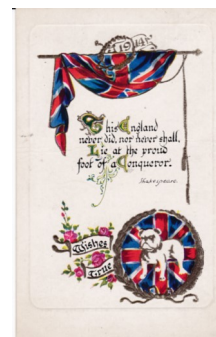 1914
This England
never did, nor never shall,
Lie at the proud
foot of a Conqueror.
Shakespeare.
Wishes
True